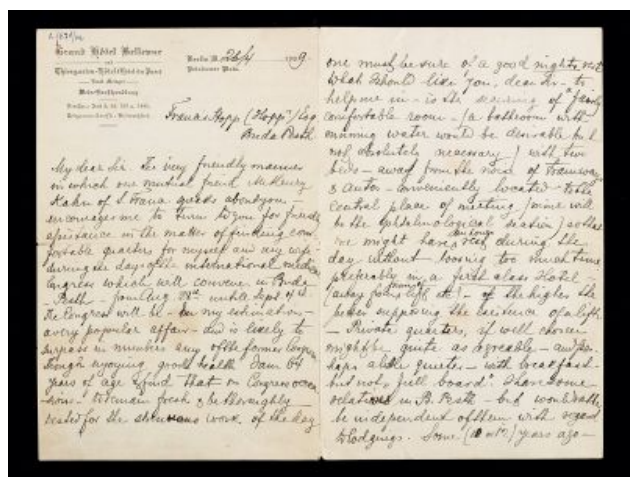 Grand Hôtel Bellevue
Berlin W. 26/4 1909.
Potsdamer Platz.
Francis Hopp ("Hopp") Esq
Buda Pesth
My dear Sir. The very friendly manner
in which our mutual friend Mr Henry
Kahn of S. Frana speaks about you -
encourages me to turn to you for friendly
assistance in the matter of finding com-
fortable quarters for myself and my wife
during the days of the international medical
Congress which will convene in Buda
-Pesth - from Aug until Sept.
The Congress will be - in my estimation -
a very popular affair - and is likely to
surpass in numbers any of the former Congresses
Though enjoying good health I am 64
years of age & find that on Congress occa-
sions - to remain fresh & be thoroughly
rested for the strenuous work of the day
one must be sure of a good nights rest
What I should like you, dear Sir - to
help me in - is the securing of a fairly
comfortable room - (a bathroom with
running water would be desirable but
not absolutely necessary) with two
beds - away from the noise of tramways
& autos - conveniently located to the
central place of meeting (mine will
be the ophthalmological section) so that
we might have rest during the
day without loosing too much time
preferably in a first class Hotel -
(away from lift etc) - of the higher the
better supposing the existence of a lift
- Private quarters, if well chosen
might be quite as agreeable - and per-
haps also quieter - with breakfast
but not "full board". I have some
relatives in B. Pesth - but would rather
be independent of them with regard
to lodgings. Some years ago -